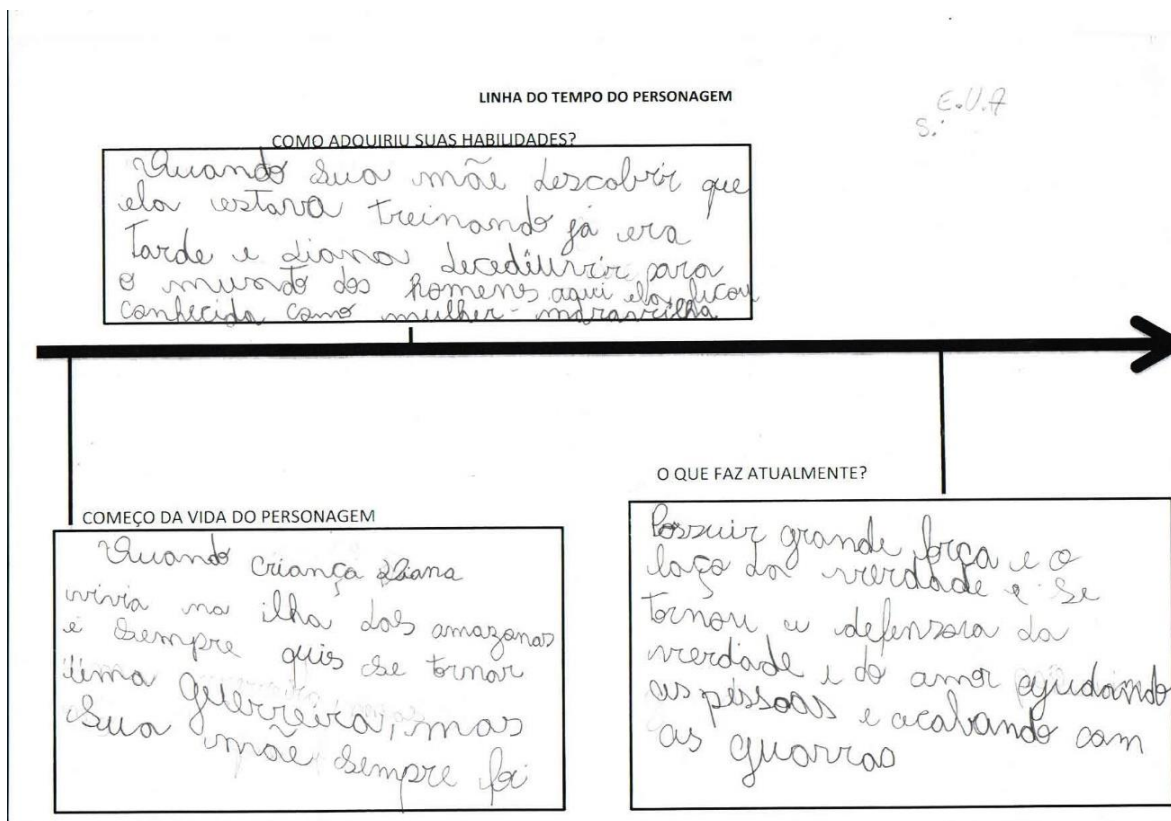 LINHA DO TEMPO DO PERSONAGEM
E.U.A
S.
COMO ADQUIRIU SUAS HABILIDADES?
Quando sua mãe descobrir que
ela estava treinando já era
tarde e diana decediu vir para
o mundo dos homens aqui ela ficou
conhecida como mulher-maravilha
COMEÇO DA VIDA DO PERSONAGEM
Quando criança Diana
vivia na ilha das amazonas
e sempre quis se tornar
uma guerreira, mas
sua mãe sempre foi
O QUE FAZ ATUALMENTE?
Possuir grande força e o
laço da verdade e se
tornou a defensora da
verdade e do amor ajudando
as pessoas e acabando com
as guarras